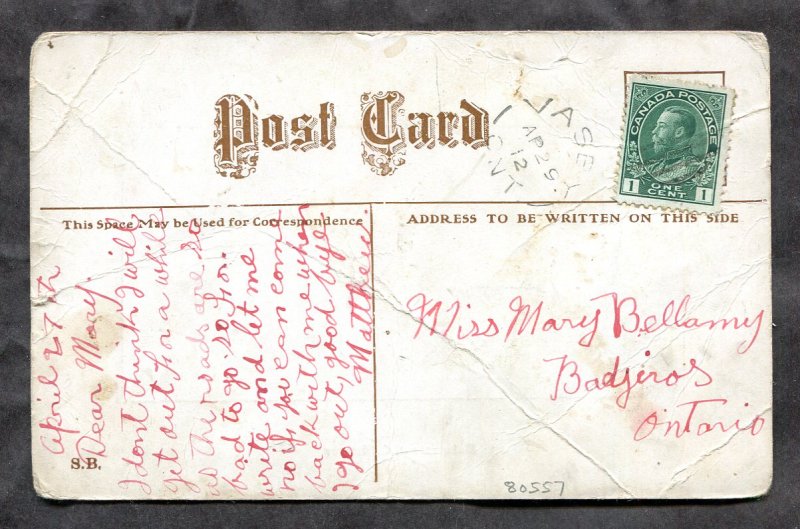 Post Card
VASEY
AP 29
12
ONT
CANADA POSTAGE
1 ONE CENT 1
This Space May be Used for Correspondence
ADDRESS TO BE WRITTEN ON THIS SIDE
April 27th
Dear Mary.
I dont think I will
get out for a while
as the roads are so
bad to go so far.
write and let me
no if you can come
back with me when
I go out, good bye
Matthew.
Miss Mary Bellamy
Badjeros
Ontario
S.B.
80557